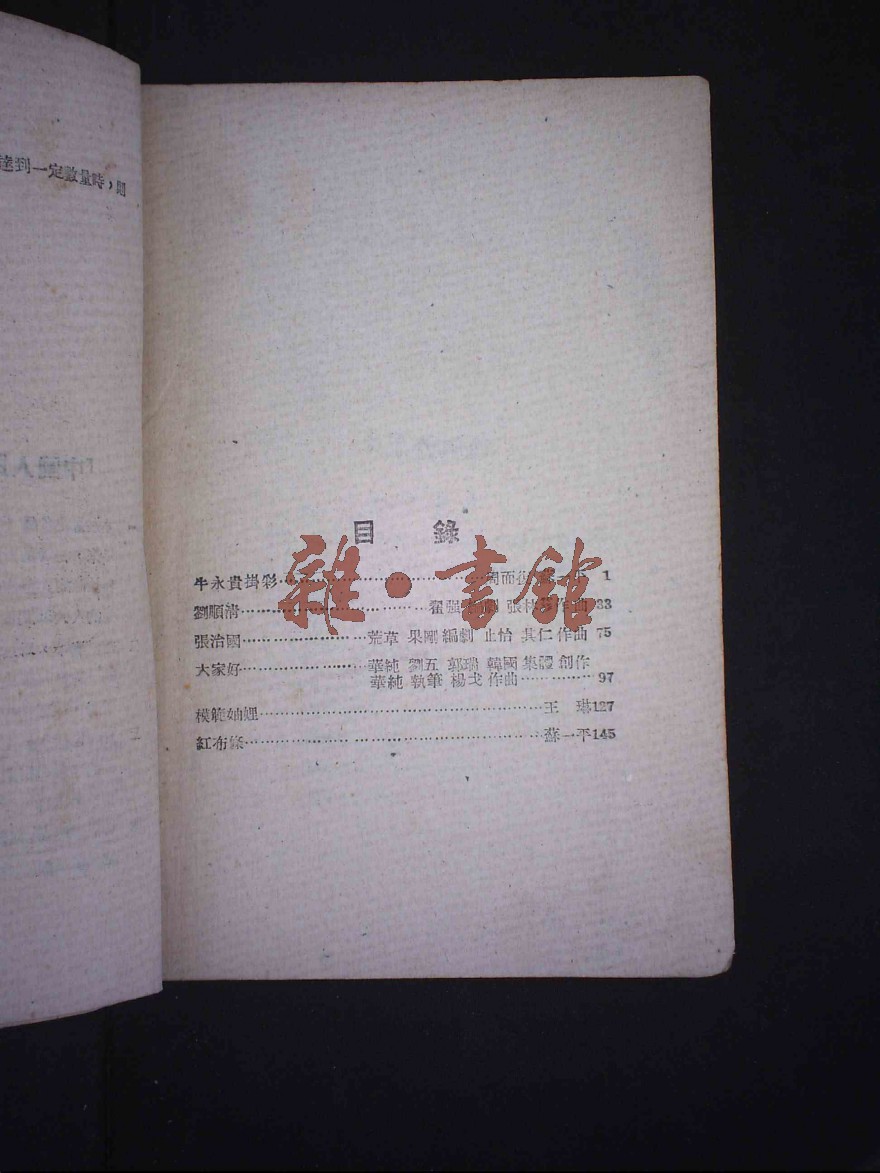 達到一定數量時，
「中國人民
目 錄
牛永貴掛彩……周而復 1
劉順清……翟强 編劇 張林簃作曲 33
張治國……荒草 果剛 編劇 止怡 其仁 作曲 75
大家好……華純 劉五 郭瑞 韓國 集體 創作
華純 執筆 楊戈 作曲……97
模範妯娌……王 琳127
紅布條……蘇一平145
雜·書館